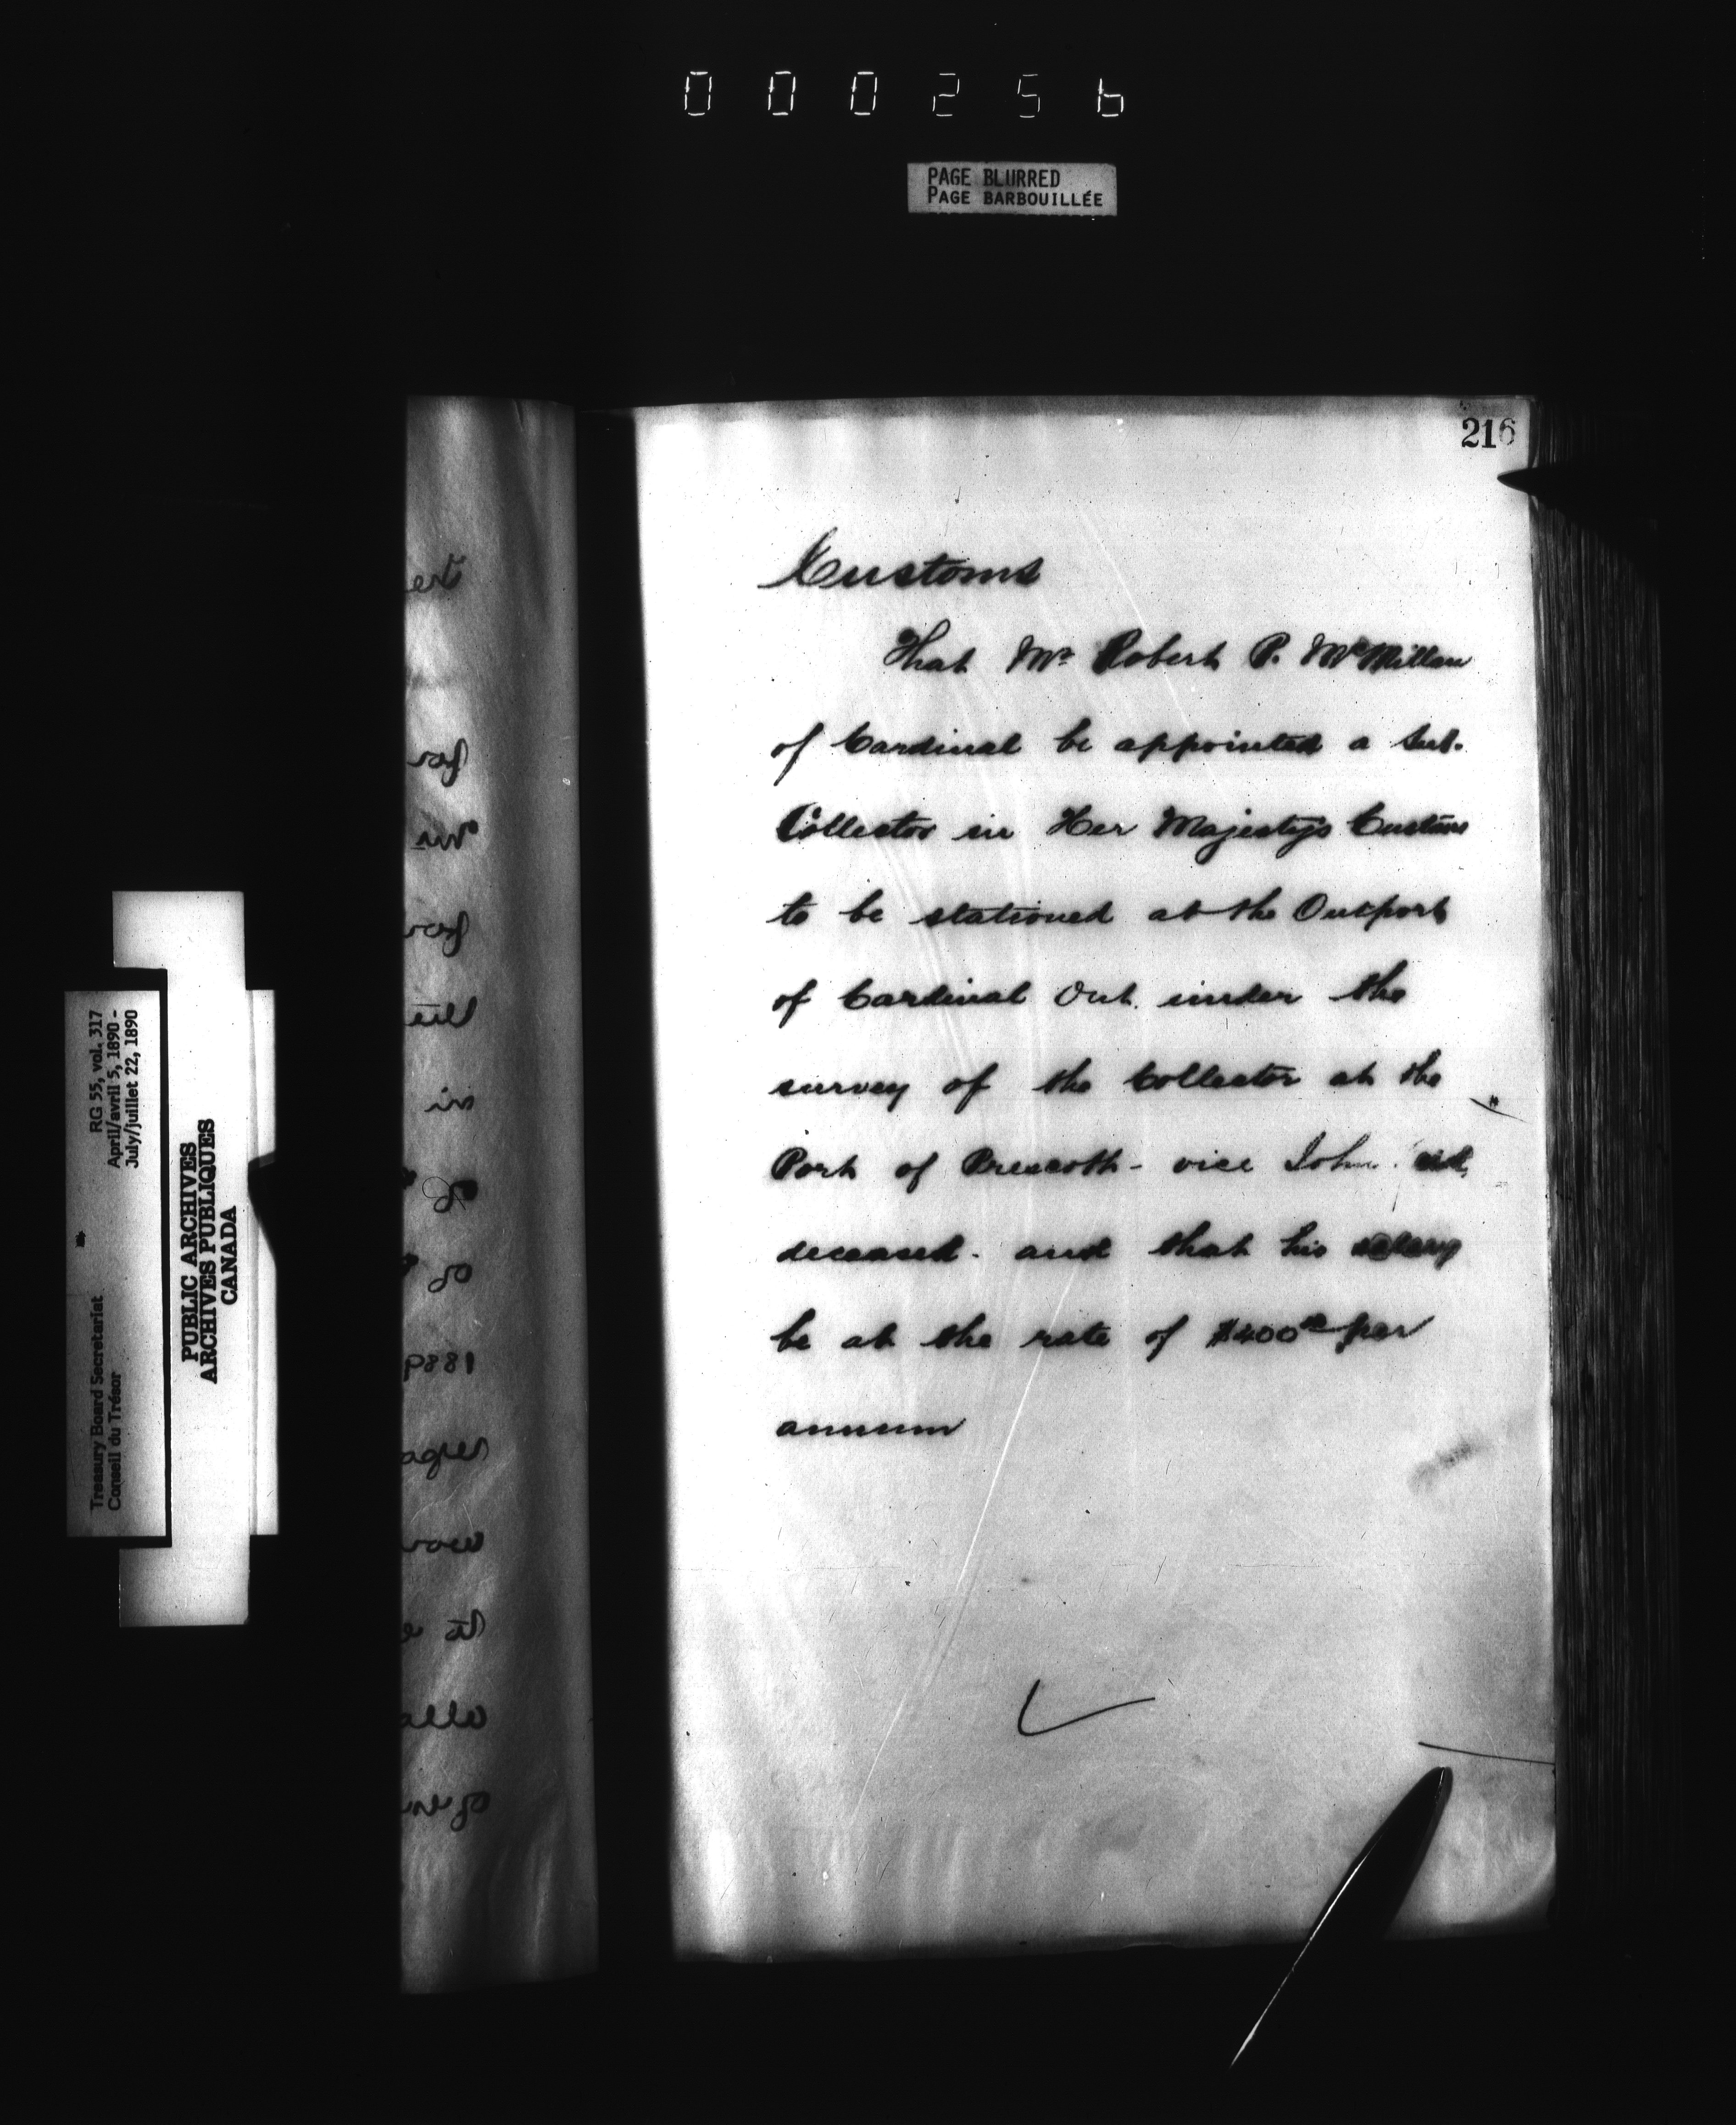 000256
PAGE BLURRED
PAGE BARBOUILLÉE
216
Customs
That Mr Robert P. McMillan
of Cardinal be appointed a Sub.
Collector in Her Majesty's Customs
to be stationed at the Outport
of Cardinal Ont. under the
survey of the Collector at the
Port of Prescott - vice John
deceased. and that his salary
be at the rate of $400 00 per
annum
RG 55, vol. 317
April/avril 5, 1890 -
July/juillet 22, 1890
Treasury Board Secretariat
Conseil du Trésor
PUBLIC ARCHIVES
ARCHIVES PUBLIQUES
CANADA